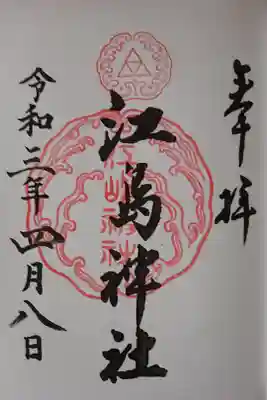 奉拝
江島神社
江嶋神社
令和三年四月八日